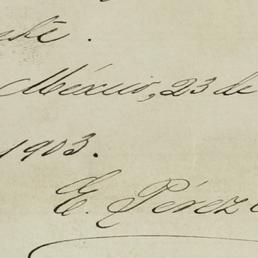 México, 23 de
1903.
E. Pérez